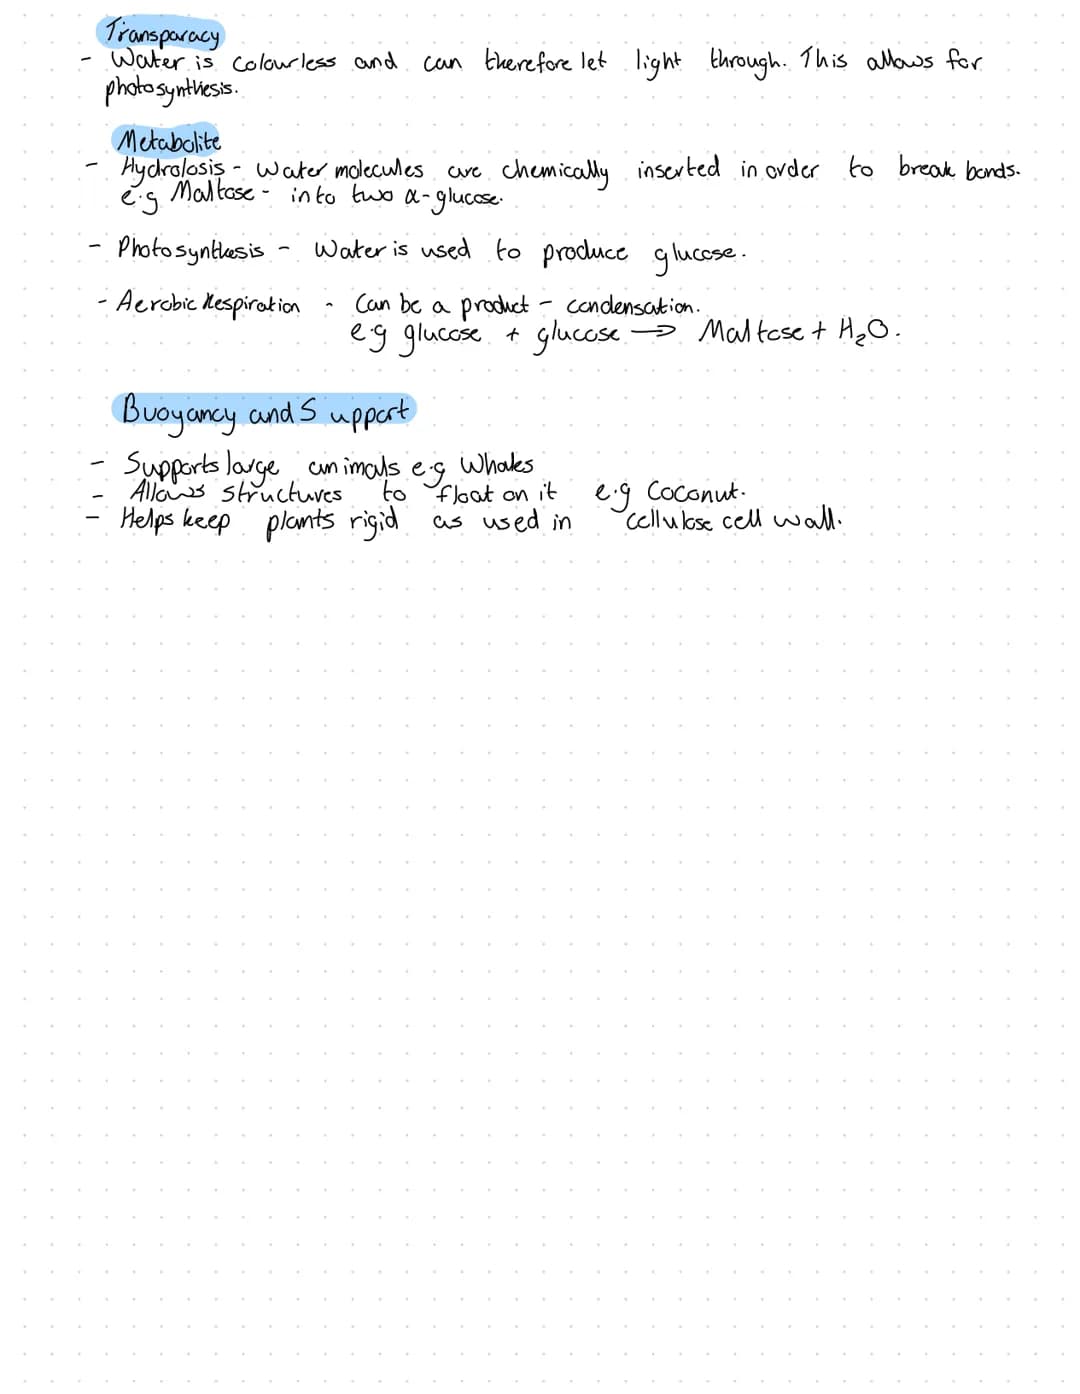 Transparacy
- Water is colourless and can therefore let light through. This allows for
photosynthesis.
Metabolite
- Hydrolosis - Water molecules are chemically inserted in order to break bonds.
e.g Maltose - into two α-glucose.
- Photosynthesis - Water is used to produce glucose.
- Aerobic Respiration - Can be a product - condensation.
e.g glucose + glucose → Maltose + H₂O.
Buoyancy and Support
- Supports large animals e.g Whales
- Allows structures to float on it e.g Coconut.
- Helps keep plants rigid as used in cellulose cell wall.